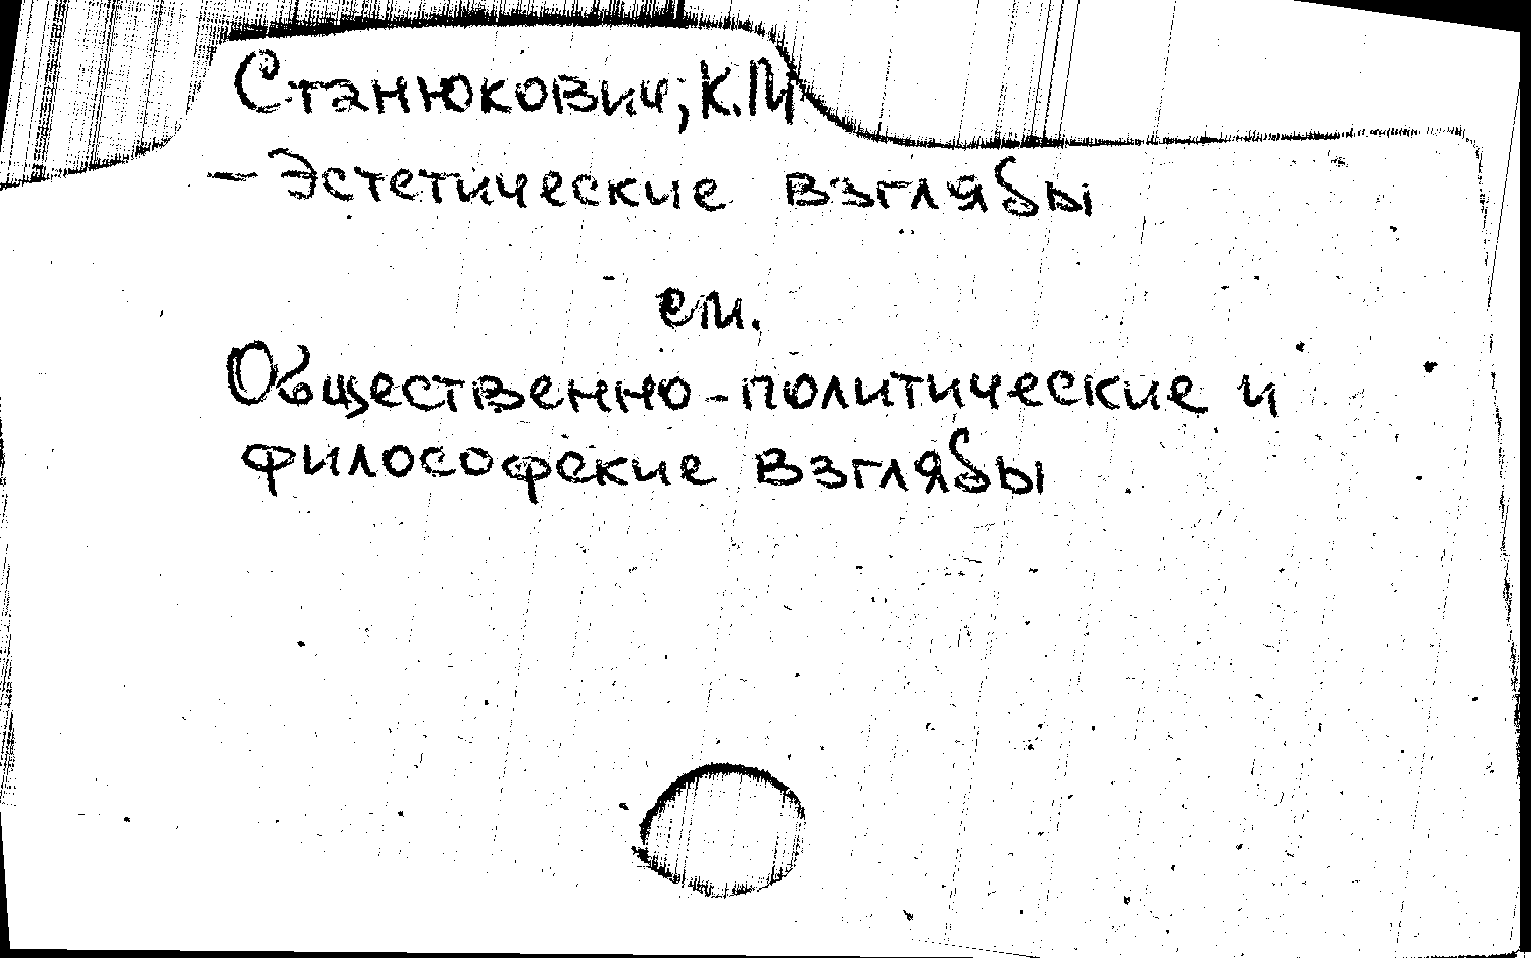 Станюкович, К.М
- Эстетические взгляды
см.
Общественно-политические и
философские взгляды